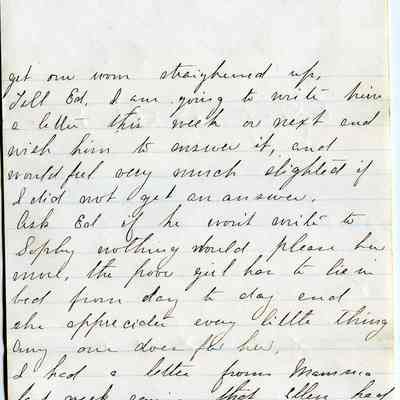 get one room straightened up,
Tell Ed. I am going to write him
a letter this week or next and
wish him to answer it, and
would feel very much slighted if
I did not get an answer.
Ask Ed if he won't write to
Sophy nothing would please her
more, the poor girl has to lie in
bed from day to day and
she appreciates every little thing
any one does for her,
I had a letter from Mamma
last week saying that Ellen had